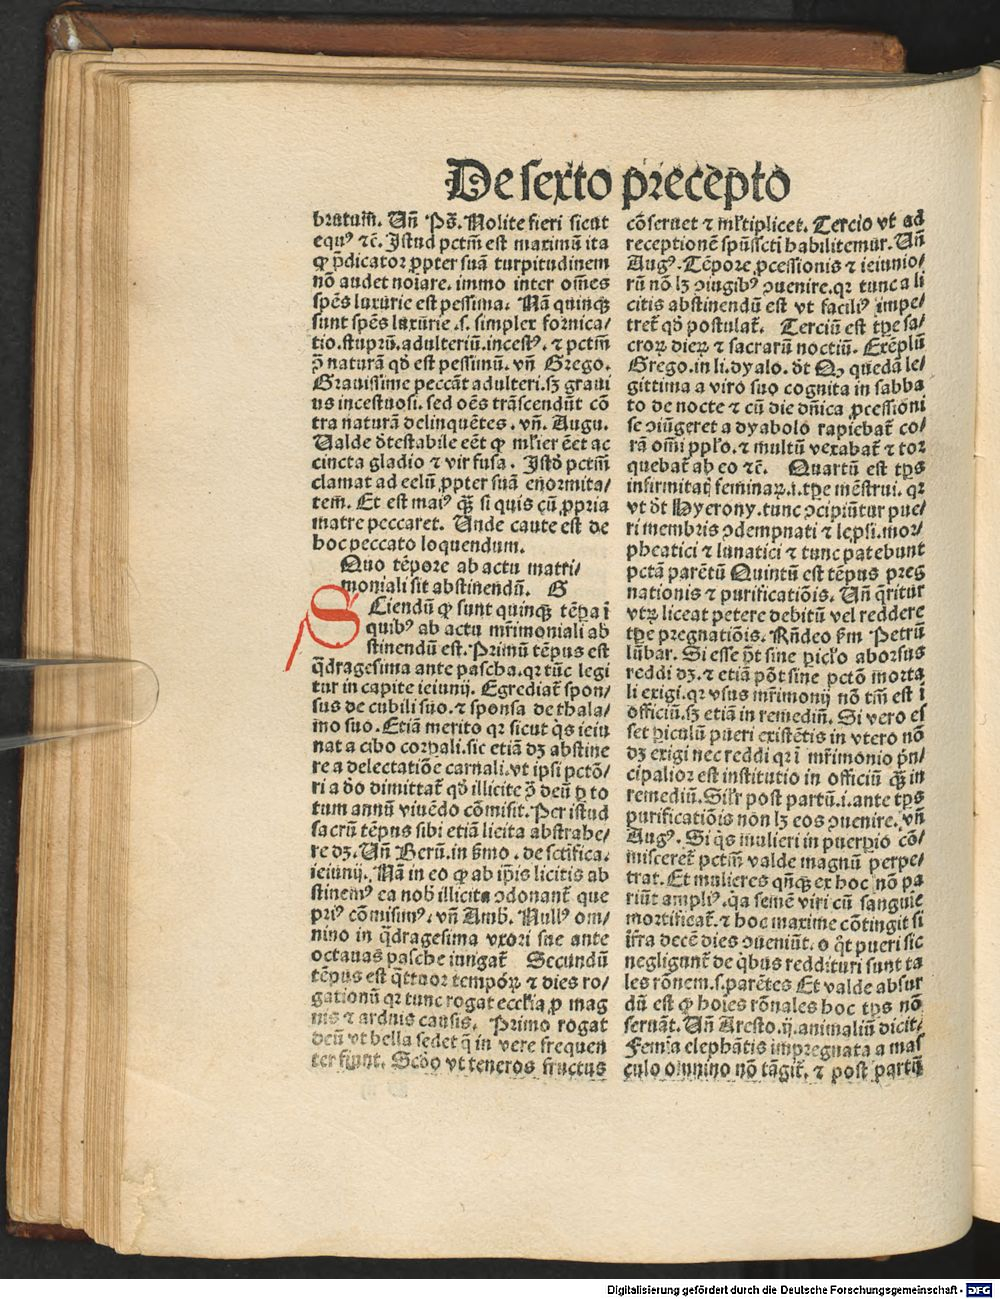 De sexto precepto
brutum̄. Un̄ Ps̄. Nolite fieri sicut
equꝰ ⁊c̄. Istud pctm̄ est maximū ita
ꝙ p̄dicator ꝓpter suā turpitudinem
nō audet noiare. immo inter om̄es
spēs luxurie est pessima. Nā quinqꝫ
sunt spēs luxurie .s. simplex fornica/
tio. stuprū. adulteriū. incestꝰ. ⁊ pctm̄
ↄ̄ naturā qd̄ est pessimū. vn̄ Grego.
Grauissime peccāt adulteri. sꝫ graui
us incestuosi. sed oēs trāscendūt cō
tra naturā delinquētes. vn̄. Augu.
Ualde d̄testabile eēt ꝙ mlier ēet ac
cincta gladio ⁊ vir fusa. Istd̄ pctm̄
clamat ad celū ꝓpter suā enormita/
tem. Et est maiꝰ qꝫ̄ si quis cū ꝓpria
matre peccaret. Unde caute est de
hoc peccato loquendum.
Quo tēpore ab actu matri/
moniali sit abstinendū. G
Sciendū ꝙ sunt quinqꝫ tēꝑa ī
quibꝰ ab actu mr̄imoniali ab
stinendū est. Primū tēpus est
q̄dragesima ante pascha. qꝛ tūc legi
tur in capite ieiunij. Egrediat̄ spon/
sus de cubili suo. ⁊ sponsa de thala/
mo suo. Etiā merito qꝛ sicut q̇s ieiu
nat a cibo corꝑali. sic etiā dꝫ abstine
re a delectatiōe carnali. vt ipsi pctō/
ri a deo dimittat̄ qd̄ illicite ↄ̄ deū ꝑ to
tum annū viuēdo cōmisit. Per istud
sacrū tēpus sibi etiā licita abstrahe/
re dꝫ. Un̄ Berū. in ẜmo. de sctīfica.
ieiunij. Nā in eo ꝙ ab ip̄is licitis ab
stinemꝰ ea nob̄ illicita ↄdonant̄ que
priꝰ cōmisimꝰ. vn̄ Amb̄. Nullꝰ om/
nino in q̄dragesima vxori sue ante
octauas pasche iungat̄ Secundū
tēpus est q̄ttuor tempoꝝ ⁊ dies ro/
gationū qꝛ tunc rogat eccl̄ia ꝓ mag
nis ⁊ arduis causis. Primo rogat
deū vt bella sedet q̄ in vere frequen
ter fiunt. Scd̄o vt teneros fructus
cōseruet ⁊ ml̄tiplicet. Tercio vt ad
receptionē spūsscti habilitemur. Un̄
Augꝰ. Tēpore ꝓcessionis ⁊ ieiunio/
rū nō lꝫ ↄiugibꝰ ↄuenire. qꝛ tunc a li
citis abstinendū est vt faciliꝰ impe/
tret̄ qd̄ postulat̄. Terciū est tꝑe sa/
croꝝ dieꝝ ⁊ sacrarū noctiū. Exēplū
Grego. in li. dyalo. dt̄ Qꝫ quedā le/
gittima a viro suo cognita in sabba
to de nocte ⁊ cū die dn̄ica ꝓcessioni
se ↄiūgeret a dyabolo rapiebat̄ co/
rā om̄i pplo. ⁊ multū vexabat̄ ⁊ tor
quebat̄ ab eo ⁊c̄. Quartū est tꝑs
infirmitatꝭ feminaꝝ .i. tꝑe mēstrui. qꝛ
vt dt̄ Hyerony. tunc ↄcipiūtur pue/
ri membris ↄdempnati ⁊ lep̄si. mor/
pheatici ⁊ lunatici ⁊ tunc patebunt
pctā parētū Quintū est tēpus preg
nationis ⁊ purificatiōis. Un̄ q̄ritur
vtꝝ liceat petere debitū vel reddere
tꝑe pregnatiōis. Rn̄deo ẜm Petrū
lūbar. Si esse p̄t sine ꝑiclo aborsus
reddi dꝫ. ⁊ etiā pōt sine pctō morta
li exigi. qꝛ vsus mr̄imonij nō tm̄ est ī
officiū. sꝫ etiā in remediū. Si vero es
set ꝑiculū pueri existētis in vtero nō
dꝫ exigi nec reddi qꝛ ī mr̄imonio p̄n/
cipalior est institutio in officiū qꝫ̄ in
remediū. Silr̄ post partū .i. ante tꝑs
purificatiōis non lꝫ eos ↄuenire. vn̄
Augꝰ. Si q̇s mulieri in puerꝑio cō/
misceret̄ pctm̄ valde magnū perpe/
trat. Et mulieres qn̄qꝫ ex hoc nō pa
riūt ampliꝰ. q̇a semē viri cū sanguīe
mortificat̄. ⁊ hoc maxime cōtingit si
īfra decē dies ↄueniūt. o q̇t pueri sic
negligunt̄ de q̇bus reddituri sunt ta
les rōnem .s. parētes Et valde absur
dū est ꝙ hoīes rōnales hoc tꝑs nō
seruāt. Un̄ Aresto. ij. animaliū dicit/
Femīa elephātis impregnata a mas
culo omnino nō tāgit̄. ⁊ post partū
Digitalisierung gefördert durch die Deutsche Forschungsgemeinschaft - DFG